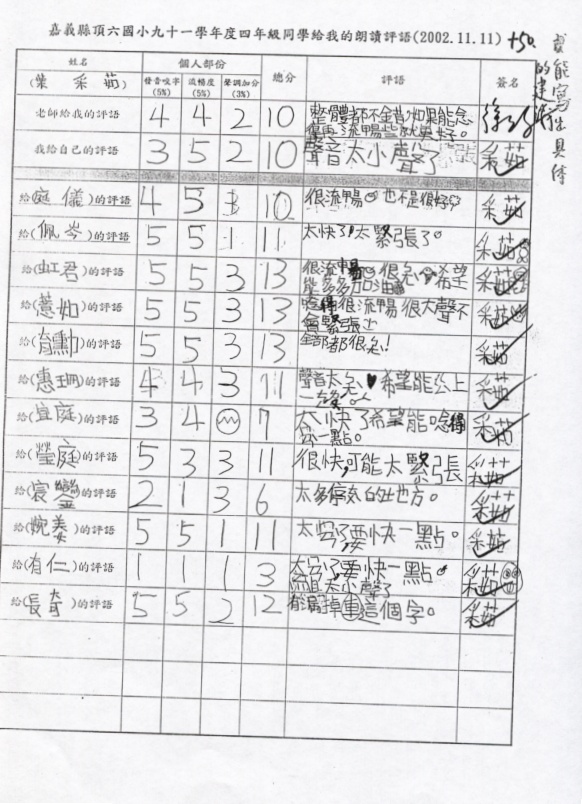 嘉義縣頂六國小九十一學年度四年級同學給我的朗讀評語(2002.11.11) +50.
姓名 個人部份 總分 評語 簽名
(葉 采茹) 發音咬字(5%) 流暢度(5%) 聲調加分(3%)
老師給我的評語 4 4 2 10 整體都不錯,如果能念
再流暢些就更好。
我給自己的評語 3 5 2 10 聲音太小聲了 采茹
給(庭儀)的評語 4 5 3 10 很流暢 也不是很好 采茹
給(佩岑)的評語 5 5 1 11 太快了!太緊張了。 采茹
給(虹君)的評語 5 5 3 13 很流暢 很 希望
能多多加油 采茹
給(薏如)的評語 5 5 3 13 唸得很流暢 很大聲不
會緊張 采茹
給(育勳)的評語 5 5 3 13 全部都很 ! 采茹
給(惠珊)的評語 4 4 3 11 聲音太 希望能 上
一 采茹
給(宜庭)的評語 3 4 7 太快了希望能唸得
一點。 采茹
給(瑩庭)的評語 5 3 3 11 很快,可能太緊張 采茹
給(宸鑾)的評語 2 1 3 6 太多停 的地方。 采茹
給(婉姜)的評語 5 5 1 11 太 了,要快一點。 采茹
給(有仁)的評語 1 1 1 3 太 了,要快一點。
太小聲了 采茹
給(長奇)的評語 5 5 2 12 有漏掉重這個字。 采茹
能寫出具体
的建議